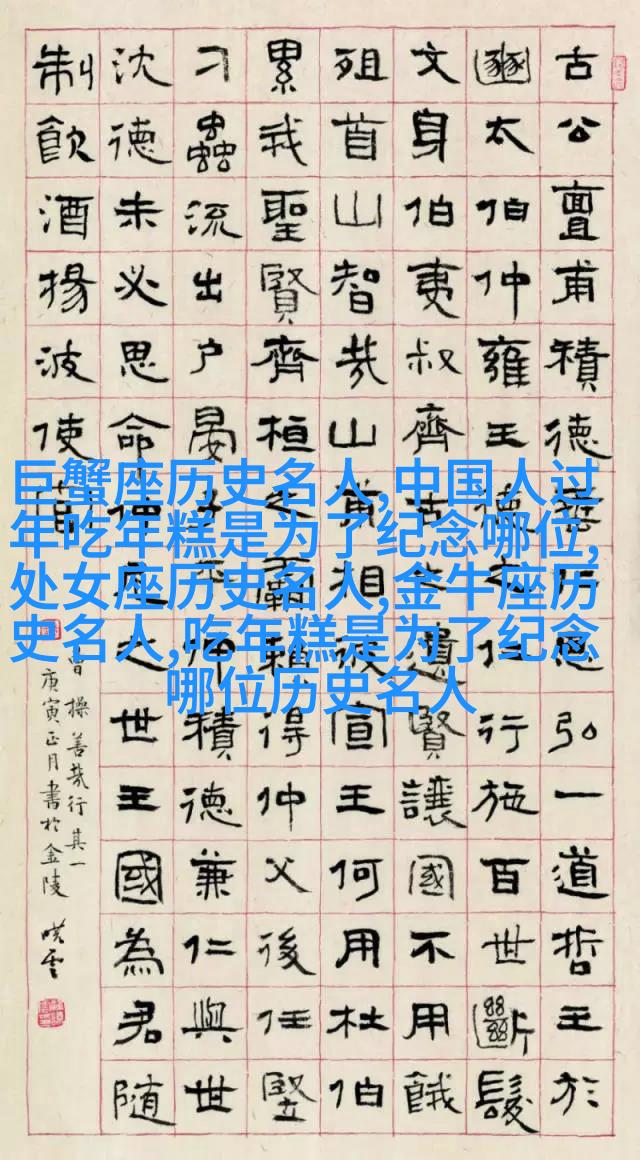 古公亶甫積德垂仁思弘一道哲王於
豳太伯仲雍王德之仁行施百世斷髮
文身伯夷叔齊古之遺賢讓國不用餓
殂首山智哉山相彼宣王何用杜伯
累我聖賢齊桓之霸賴得仲父後任豎
刁蟲流出户晏子平仲積德兼仁與世
沈德未必思命仲尼之世王國為君隨
制飲酒揚波使
曹操善哉行其一
庚寅正月書於金陵
巨蟹座历史名人,中国人过
年吃年糕是为了纪念哪位,
处女座历史名人,金牛座历
史名人,吃年糕是为了纪念
哪位历史名人